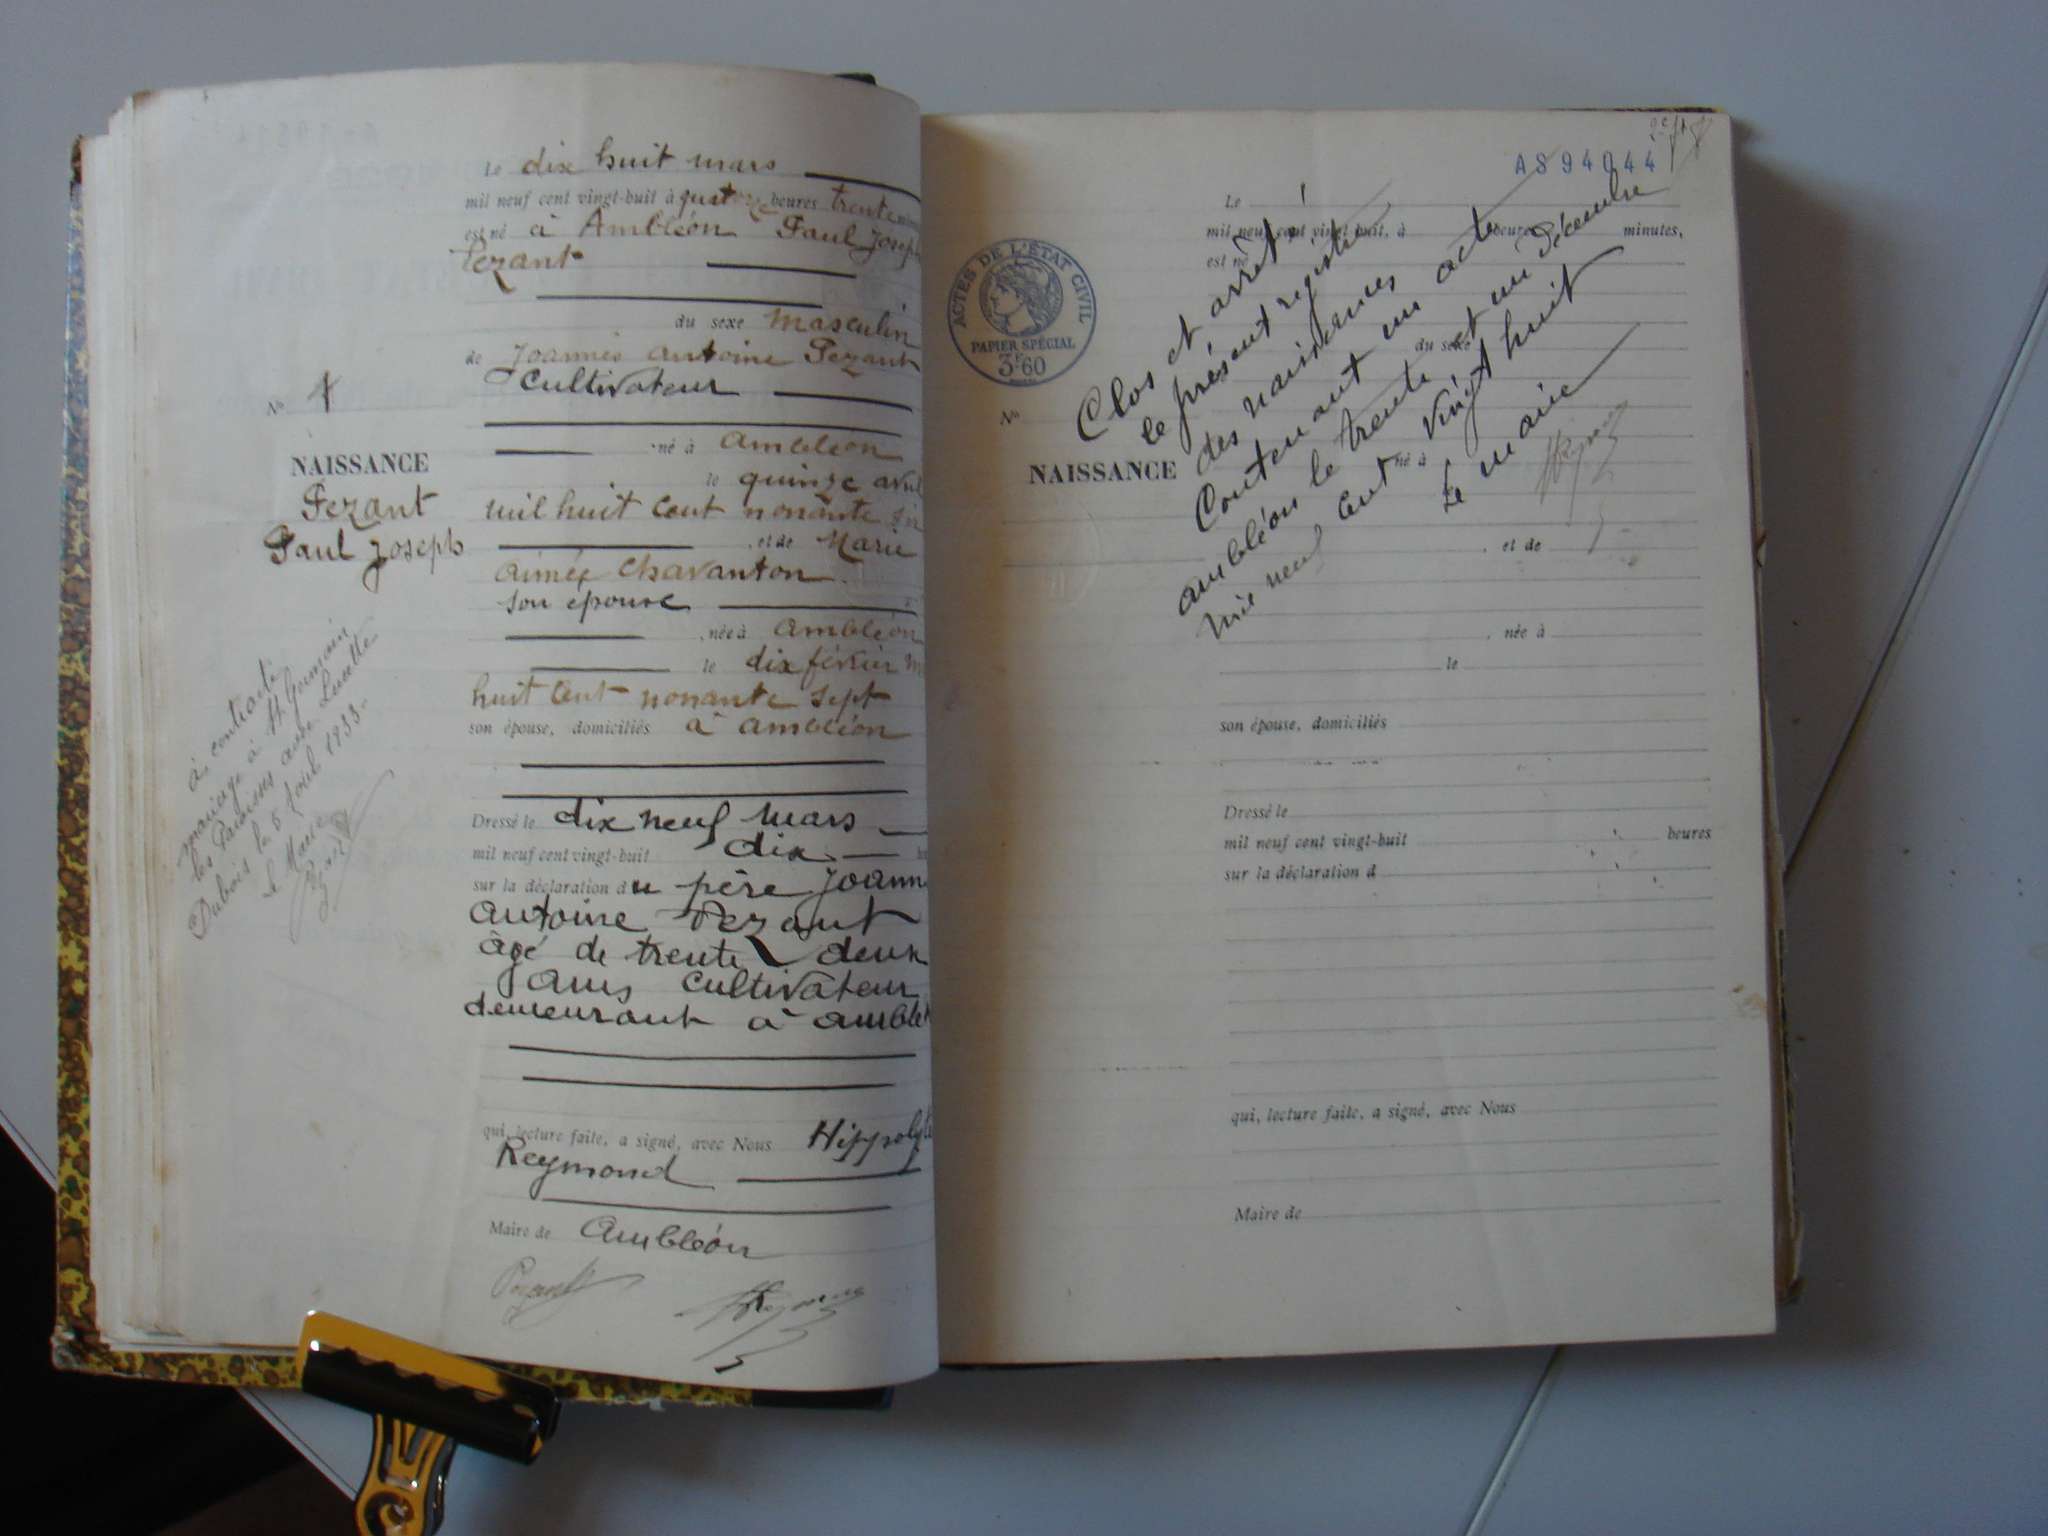 le dix huit mars
mil neuf cent vingt-huit à quatorze heures trente
est né à Ambléon Paul Joseph
Pezant
du sexe masculin
de Joannès antoine Pezant
cultivateur
né à ambléon
le quinze avril
mil huit cent nonante six
, et de Marie
aimée Chavanton
son épouse
, née à ambléon
le dix février
huit cent nonante sept
son épouse, domiciliés à ambléon
Dressé le dix neuf mars
mil neuf cent vingt-huit dix
sur la déclaration du père Joann
antoine Pezant
âgé de trente deux
ans cultivateur
demeurant à amblé
qui, lecture faite, a signé, avec Nous Hippolyte
Reymond
Maire de Ambléon
Pezant
HReymond
No 1
NAISSANCE
Pezant
Paul Joseph
a contracté
mariage à St Germain
les Paroisses avec Lucette
Dubois le 5 1953
Le Maire
AS 94044
ACTES DE L'ÉTAT CIVIL
PAPIER SPÉCIAL
3F60
No
NAISSANCE
Le
mil neuf cent vingt-huit, à heures minutes,
est né
du sexe
né à
, et de
, née à
le
son épouse, domiciliés
Dressé le
mil neuf cent vingt-huit heures
sur la déclaration d
qui, lecture faite, a signé, avec Nous
Maire de
Clos et arrêté
le présent registre
des naissances
Contenant un acte
ambléon le trente et un Décembre
mil neuf cent vingt huit
Le maire
HReymond